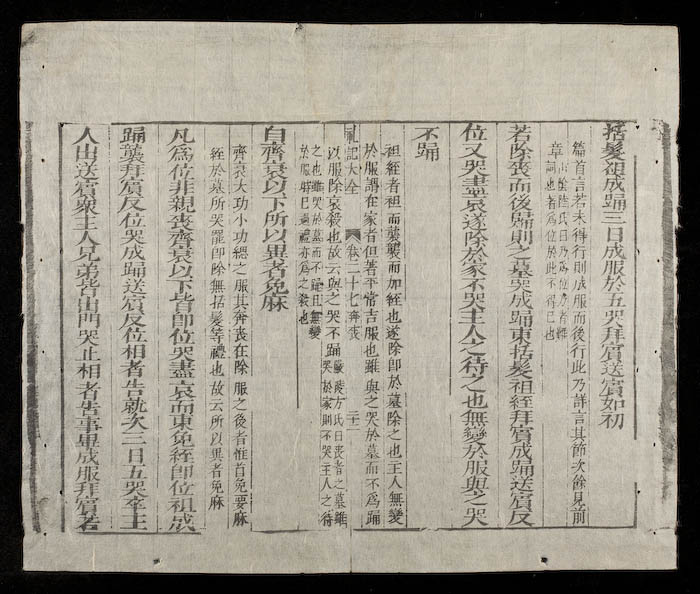 括髮袒成踊三日成服於五哭拜賓送賓如初
篇首言若未得行則成服而後行此乃詳言其節次餘見前
章
若除喪而後歸則之墓哭成踊東括髮袒絰拜賓成踊送賓反
位又哭盡哀遂除於家不哭主人之待之也無變於服與之哭
不踊
袒絰者袒而襲襲而加絰也遂除即於墓除之也主人無變
於服謂在家者但著平常吉服也雖與之哭於墓而不爲踊
以服除哀殺也故云與之哭不踊嚴陵方氏曰喪者之墓雖
哭於家則不哭主人之待
之也雖哭於墓而不踊且無變
於服時已過禮亦爲之殺也
禮記大全 卷二十七奔喪 二十二
自齊衰以下所以異者免麻
齊衰大功小功緦之服其奔喪在除服之後者惟首免要麻
絰於墓所哭罷即除無括髮等禮也故云所以異者免麻
凡爲位非親喪齊衰以下皆即位哭盡哀而東免絰即位袒成
踊襲拜賓反位哭成踊送賓反位相者告就次三日五哭卒主
人出送賓衆主人兄弟皆出門哭止相者告事畢成服拜賓若